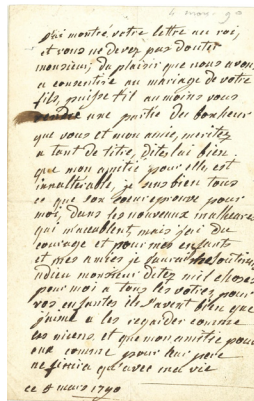 4 mars 90
j'ai montré votre lettre au roi,
et vous ne devez pas douter
monsieur, du plaisir que nous avons
a consentire au mariage de votre
fils puisse t'il au moins vous
rendre une partie des bonheur
que vous et mon amie, meritez
a tant de titre, dites lui bien
que mon amitié pour elle, est
innaltérable, je sens bien tous
ce que son coeur eprouve pour
moi, dans les nouveaux malheurs
qui m'accablent, mais j'ai du
courage et pour mes enfants
et mes amies je saurai me soutenir
adieu monsieur dites mil choses
pour moi a tous les votres, pour
vos enfantes ils savent bien que
j'aime a les regarder comme
les miens, et que mon amitié pour
eux comme pour leur pere
ne finira qu'avec ma vie
ce 8 mars 1790